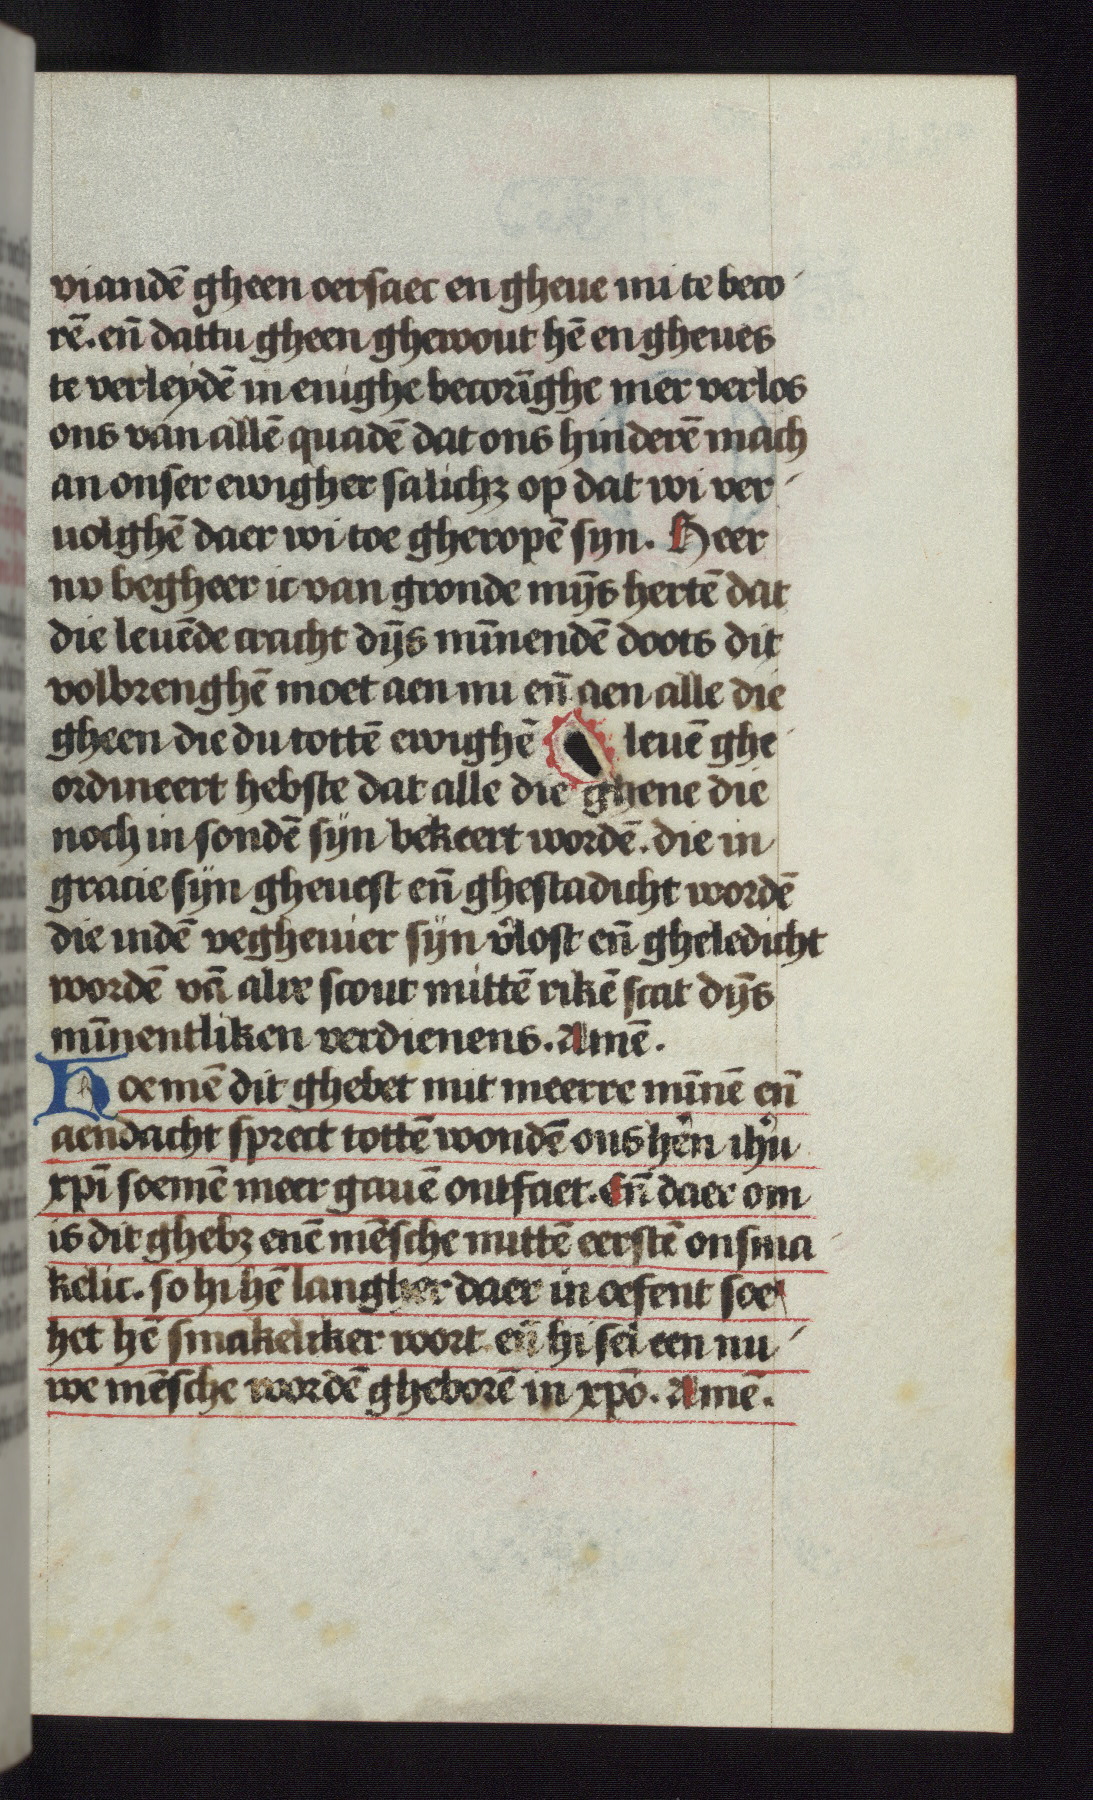 viandē gheen oersaec en gheue mi te beco
rē. en̄ dattu gheen ghewout hē en gheues
te verleydē in enighe becorīghe mer verlos
ons van allē quadē dat ons hinderē mach
an onser ewigher salichꝫ op dat wi ver
uolghē daer wi toe gheropē syn. Heer
nv begheer ic van gronde mȳs hertē dat
die leuēde cracht dȳs mīnendē doots dit
volbrenghē moet aen mi en̄ aen alle die
gheen die du tottē ewighē leuē ghe
ordineert hebste dat alle die ghene die
noch in sondē sijn bekeert wordē. die in
gracie sijn gheuest en̄ ghestadicht wordē
die indē veghevier sijn v̓lost en̄ gheledicht
wordē vā alre scout mittē rikē scat dȳs
mīnentliken verdienens. Amē.
Hoe mē dit ghebet mit meerre mīnē en̄
aendacht sprect tottē wondē ons hērn ihū
xpī soe mē meer gauē ontfaet. En̄ daer om
is dit ghebꝫ enē mēsche mittē eerstē onsma
kelic. so hi hē langher daer in oefent soe
het hē smakeliker wort en̄ hi sel een nu
we mēsche wordē gheborē in xpō. Amē.